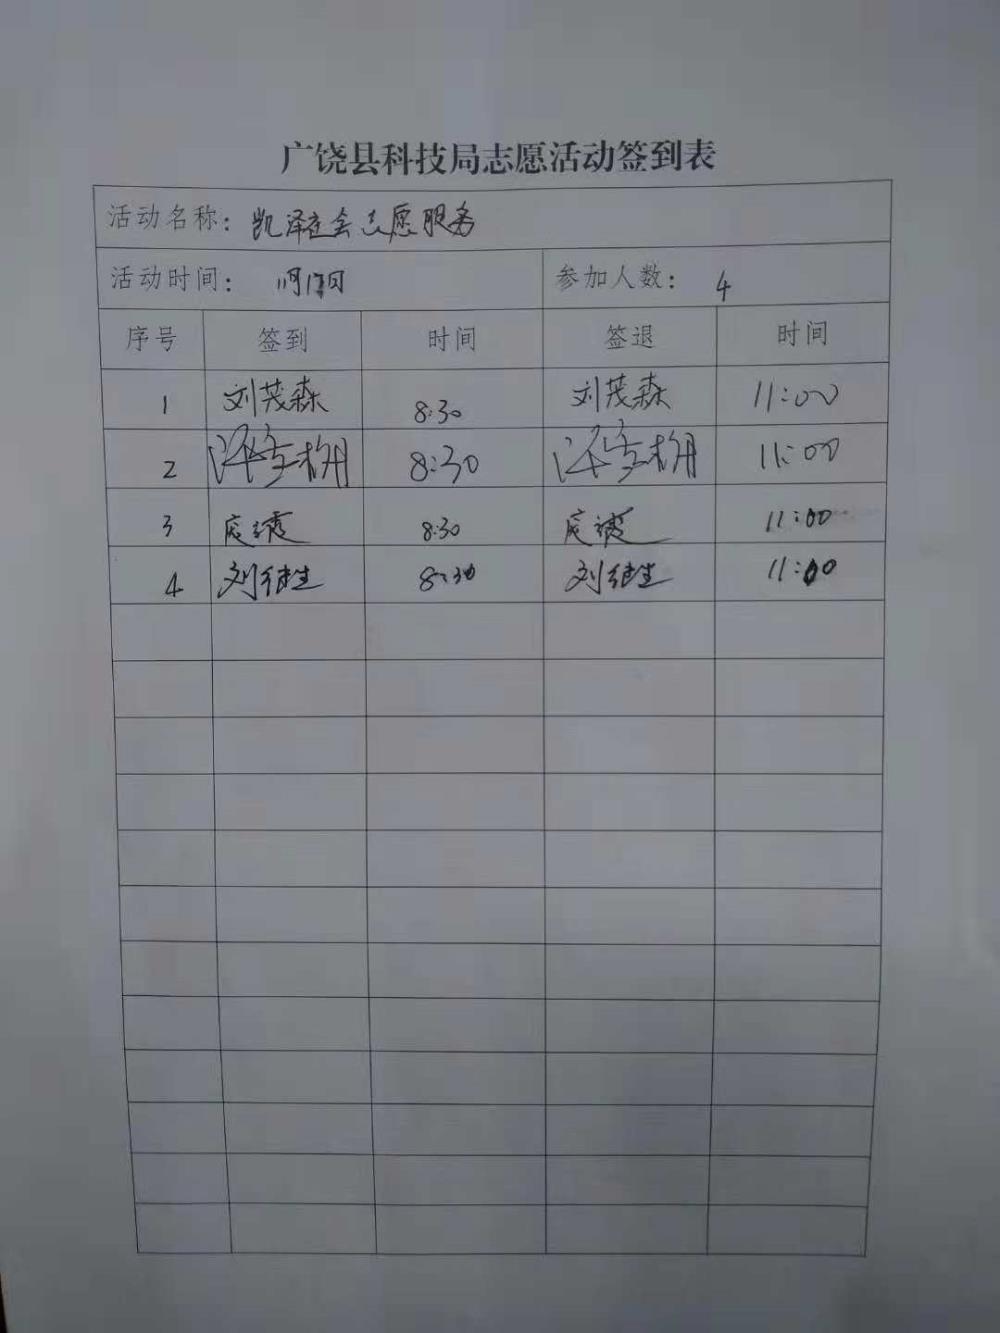 广饶县科技局志愿活动签到表
活动名称：凯泽社会志愿服务
活动时间：11月17日 参加人数：4
序号 签到 时间 签退 时间
1 刘茂森 8:30 刘茂森 11:00
2 8:30 11:00
3 8:30 11:00
4 刘继生 8:30 刘继生 11:00